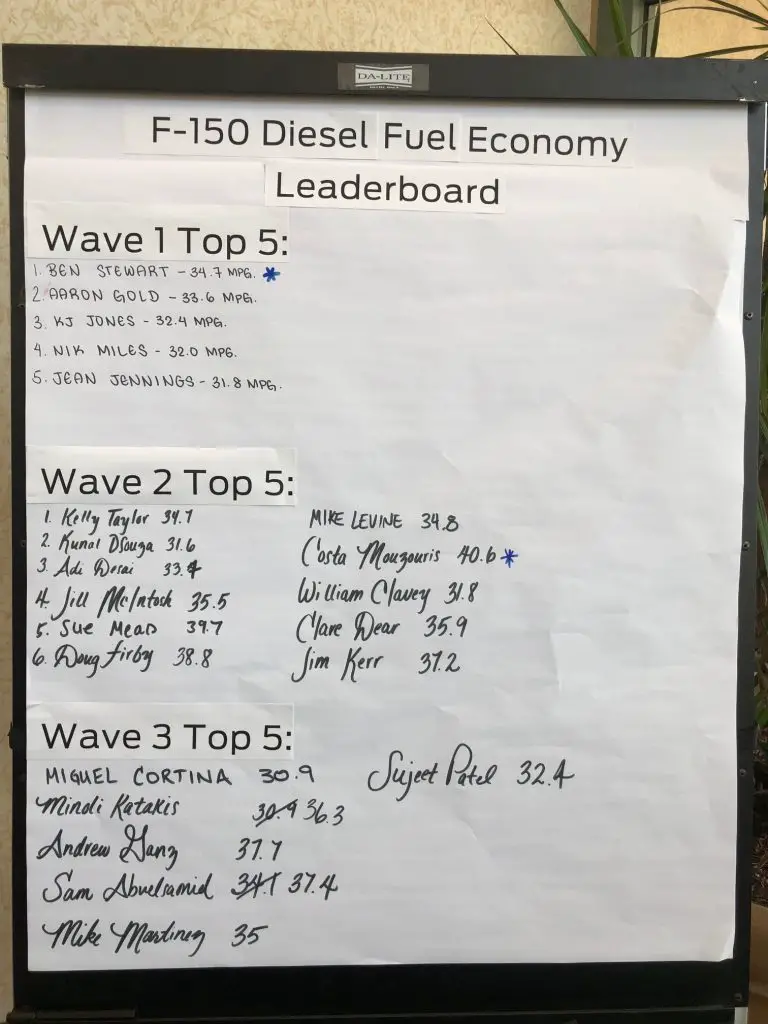 DA-LITE
F-150 Diesel Fuel Economy
Leaderboard
Wave 1 Top 5:
1. BEN STEWART - 34.7 MPG. *
2. AARON GOLD - 33.6 MPG.
3. KJ JONES - 32.4 MPG.
4. NIK MILES - 32.0 MPG.
5. JEAN JENNINGS - 31.8 MPG.
Wave 2 Top 5:
1. Kelly Taylor 34.7
2. Kunal Dsouza 31.6
3. Adi Desai 33.4
4. Jill McIntosh 35.5
5. Sue Mead 39.7
6. Doug Firby 38.8
MIKE LEVINE 34.8
Costa Mouzouris 40.6 *
William Clavey 31.8
Clare Dear 35.9
Jim Kerr 37.2
Wave 3 Top 5:
MIGUEL CORTINA 30.9
Mindi Katakis 30.9 36.3
Andrew Ganz 37.7
Sam Abuelsamid 34.1 37.4
Mike Martinez 35
Sujeet Patel 32.4